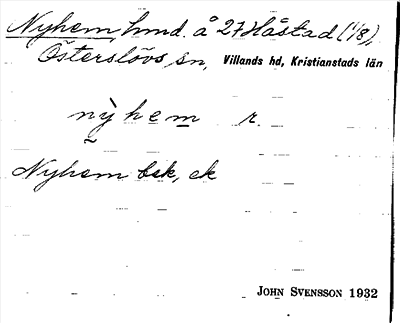 Nyhem, hmd. å 27 Håstad (1/8),
Österslövs sn, Villands hd, Kristianstads län
nỳhem r.
Nyhem bek, ek
JOHN SVENSSON 1932